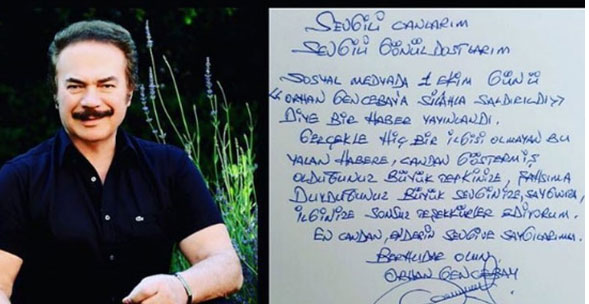 SEVGİLİ CANLARIM
SEVGİLİ GÖNÜL DOSTLARIM
SOSYAL MEDYADA 1 EKİM GÜNÜ
"ORHAN GENCEBAY'A SİLAHLA SALDIRILDI"
DİYE BİR HABER YAYINLANDI.
GERÇEKLE HİÇ BİR İLGİSİ OLMAYAN BU
YALAN HABERE, CANDAN GÖSTERMİŞ
OLDUĞUNUZ BÜYÜK TEPKİNİZE, ŞAHSIMA
DUYDUĞUNUZ BÜYÜK SEVGİNİZE, SAYGINIZA,
İLGİNİZE SONSUZ TEŞEKKÜRLER EDİYORUM.
EN CANDAN, EN DERİN SEVGİ VE SAYGILARIMLA.
BERHUDAR OLUN.
ORHAN GENCEBAY